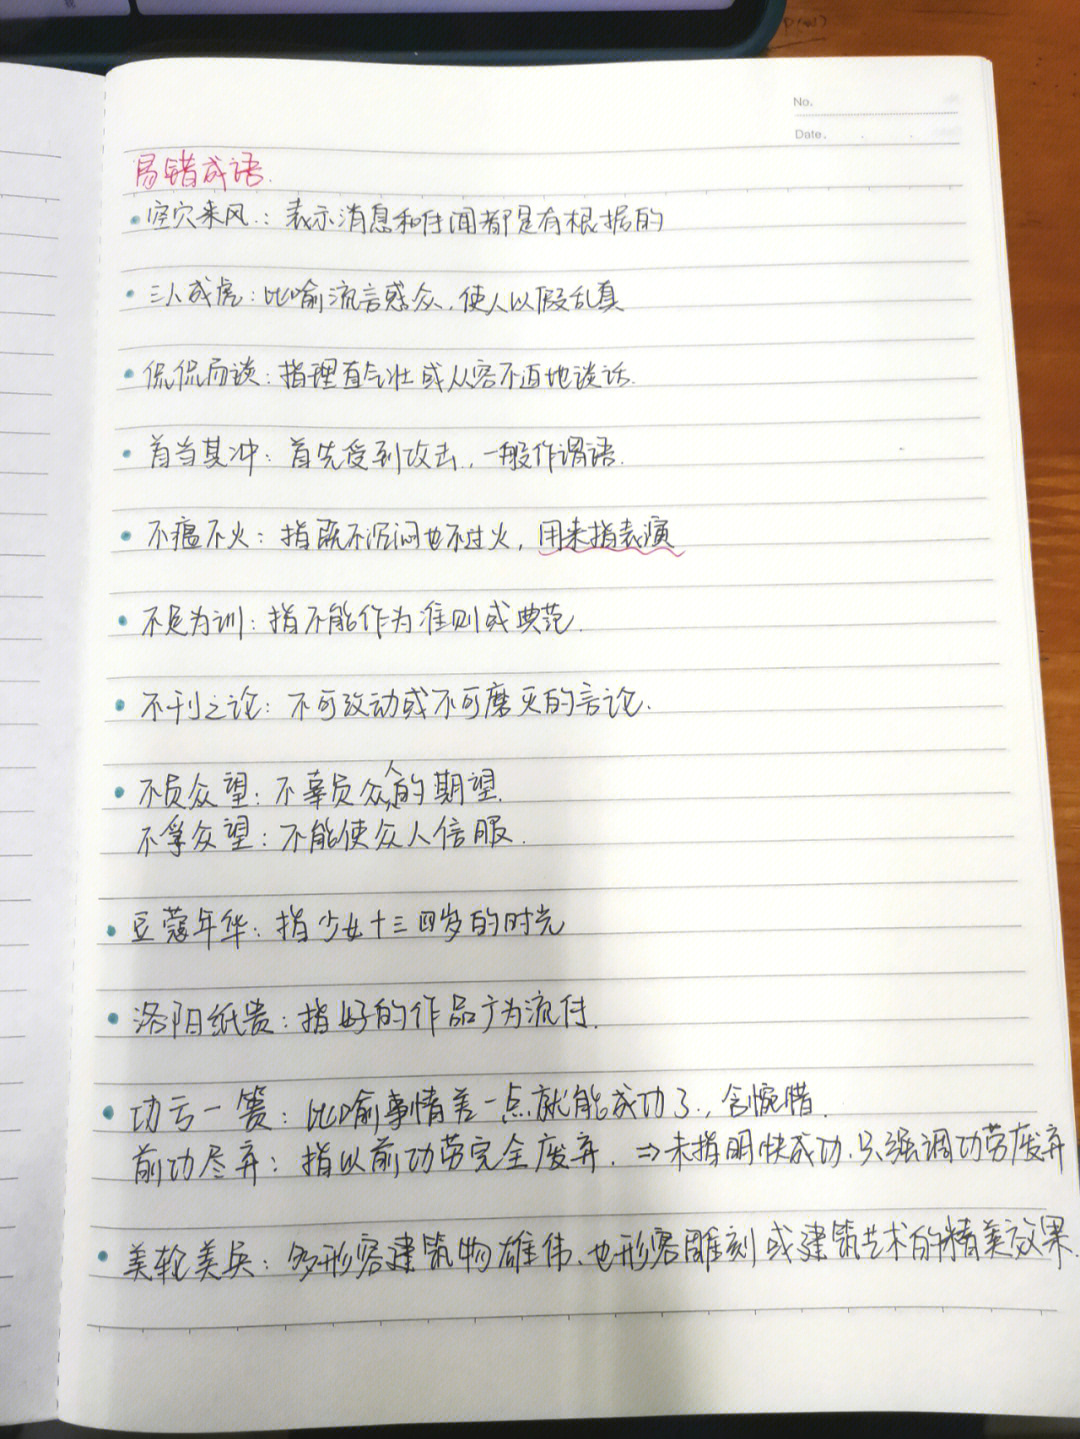 No.
Date.
易错成语.
空穴来风：表示消息和传闻都是有根据的
三人成虎：比喻流言惑众，使人以假乱真
侃侃而谈：指理直气壮或从容不迫地谈话.
首当其冲：首先受到攻击，一般作谓语.
不瘟不火：指既不沉闷也不过火，用来指表演
不足为训：指不能作为准则或典范.
不刊之论：不可改动或不可磨灭的言论.
不负众望：不辜负众人的期望.
不孚众望：不能使众人信服.
豆蔻年华：指少女十三四岁的时光
洛阳纸贵：指好的作品广为流传.
功亏一篑：比喻事情差一点就能成功了，含惋惜.
前功尽弃：指以前功劳完全废弃. ⇒未指明快成功，只强调功劳废弃
美轮美奂：多形容建筑物雄伟、也形容雕刻或建筑艺术的精美效果.